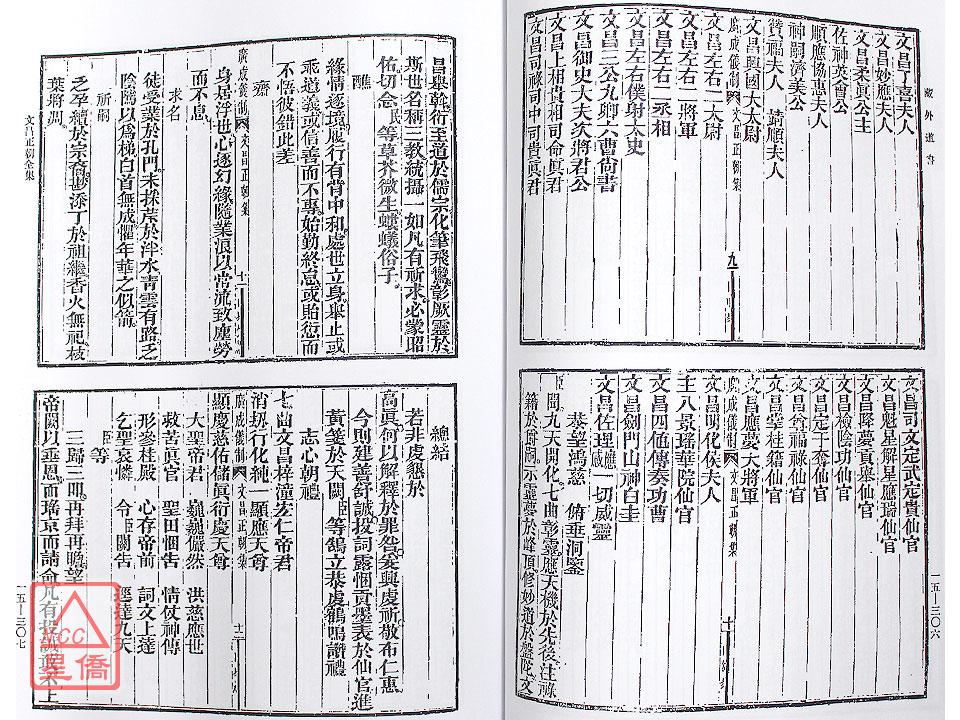 藏外道書
文昌了喜夫人
文昌妙應夫人
文昌柔真公主
順應協惠夫人
佐神英尊公
神嗣濟美公
贊福夫人 靖順夫人
文昌興國大太尉
廣成儀制 文昌正朝集 九
文昌左右二太尉
文昌左右二將軍
文昌左右二丞相
文昌左右僕射太史
文昌三公九卿六曹尚書
文昌御史大夫次將君公
文昌上相貴相司命真君
文昌司祿司中司貴真君
文昌司文定武定貴仙官
文昌魁星解星應瑞仙官
文昌降夢直舉仙官
文昌檢陰功仙官
文昌定于奎仙官
文昌尊福祿仙官
文昌掌桂籍仙官
文昌應夢大將軍
廣成儀制 文昌正朝集 十
文昌明化侯夫人
主八景瑤華院仙官
文昌四值傳奏功曹
文昌劍門山神白圭
文昌佐理威應一切威靈
恭望鴻慈 俯垂洞鑒
臣聞九天開化七曲彰靈應天機於先後注祿
籍於 嗣示靈夢於 頂修妙道於盤陀文
一五—三〇六
昌舉斡衍至道於儒宗化筆飛鸞彰厥靈於
斯世名稱三教統攝一如凡有所求必蒙昭
佑切念民等草芥微生蟻俗子
醮
緣情逐境應行有背中和處世立身舉止或
乖道義或信善而不專始勤終怠或貽愆而
不悟彼錯此差
齋
廣成儀制 文昌正朝集 十一
身居浮世心逐幻緣隨業浪以常流致塵勞
而不息
求名
徒受業於孔門未採芹於泮水青雲有路乏
陰隲以為梯白首無成懼年華之似箭
祈嗣
乏孕續於宗裔尠添丁於祖繼香火無祀枝
葉將凋
文昌正朝全集
總結
若非虔懇於
高真何以解釋於罪咎爰興虔祈敬布仁惠
今則建善舒誠投詞露悃貢墨表於仙官進
黃箋於天闕臣等鵠立恭虔鶴鳴讚禮
志心朝禮
七曲文昌梓潼宏仁帝君
消劫行化純一顯應天尊
廣成儀制 文昌正朝集 十二
顯慶慈佑儲真衍慶天尊
大聖帝君 巍巍儼然 洪慈應世
救苦真官 聖田悃告 情仗神傳
形參桂殿 心存帝前 詞文上達
乞聖哀憐 今臣關告 逕達九天
臣等
三歸三皿再拜再瞻望
帝闕以垂恩而瑤京而請命凡有投誠 上
一五—三〇七
星僑